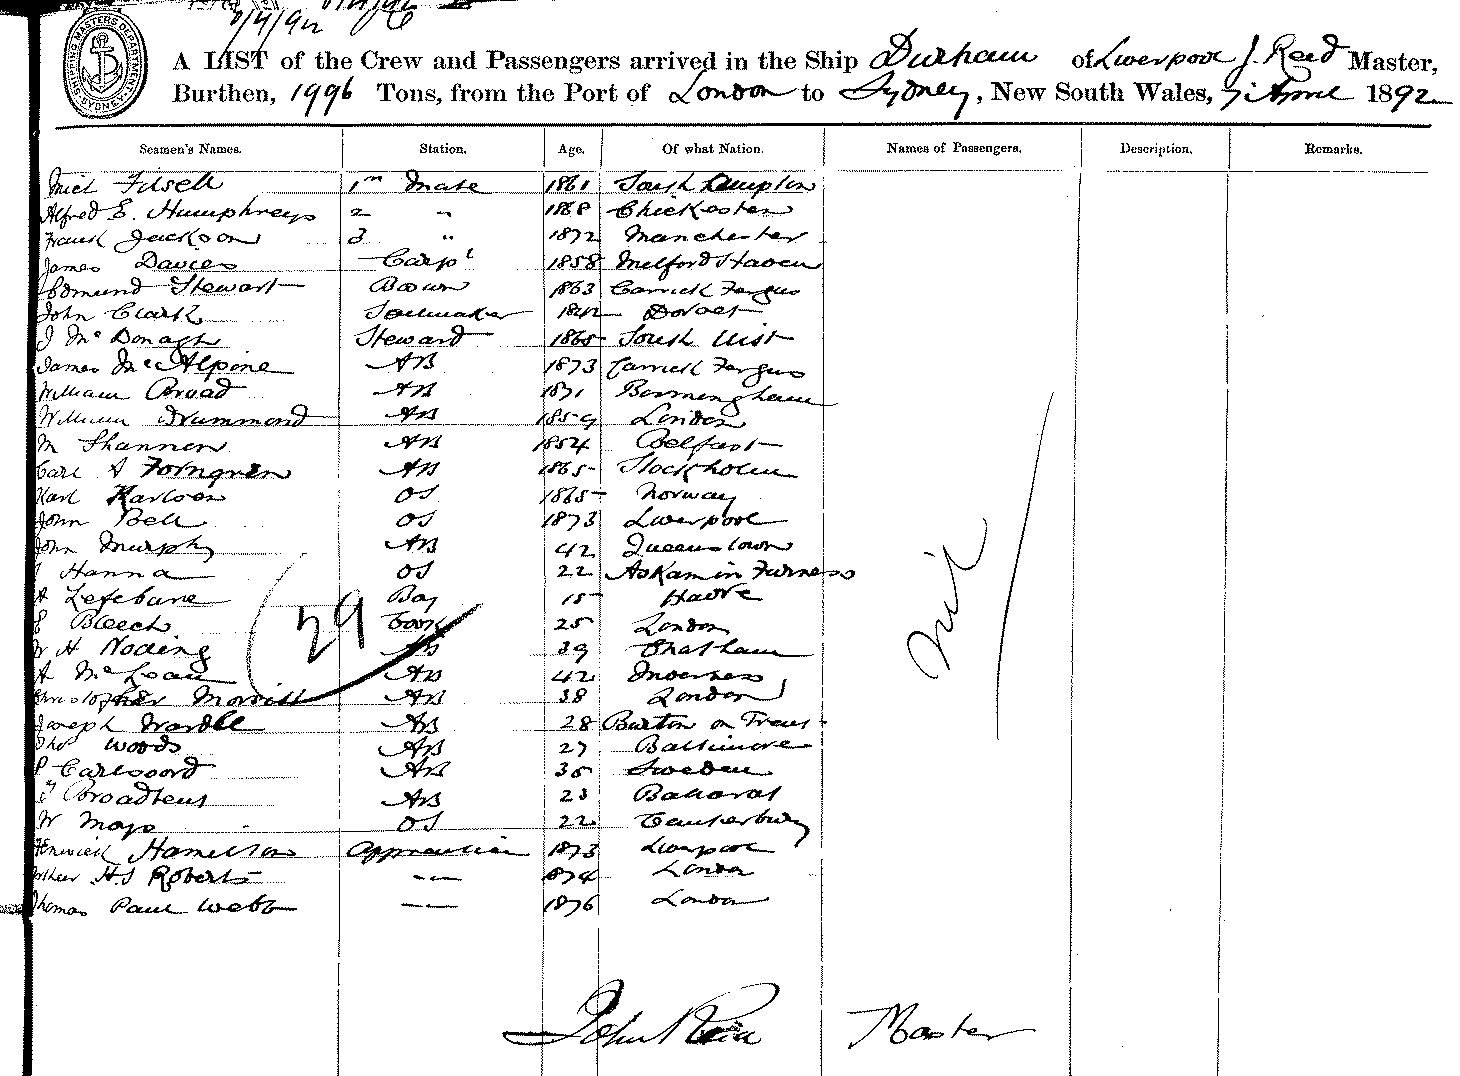 SHIPPING MASTERS DEPARTMENT SYDNEY
7/4/92
A LIST of the Crew and Passengers arrived in the Ship Durham of Liverpool J. Reed Master,
Burthen, 1996 Tons, from the Port of London to Sydney, New South Wales, 7 April 1892
Seamen's Names. Station. Age. Of what Nation. Names of Passengers. Description. Remarks.
1st Mate 1861 South Hampton
Alfred E. Humphreys 2 " 1868 Chichester
Frank Jackson 3 " 1872 Manchester
James Davies Carpr 1858 Milford Haven
Edmund Stewart Bosun 1863 Carrick Fergus
John Clark Sailmaker 1842 Dorset
J McDonagh Steward 1865 South Uist
James McAlpine AB 1873 Carrick Fergus
William Broad AB 1871 Birmingham
William Drummond AB 1859 London
M Shannon AB 1854 Belfast
Carl A Forngren AB 1865 Stockholm
Karl Karlson OS 1865 Norway
John Bell OS 1873 Liverpool
John Murphy AB 42 Queenstown
Hanna OS 22 Askam in Furness
A Lefebane Boy 15 Havre
E Bleech Cook 25 London
W H Noding AB 39 Chatham
A McLean AB 42 Inverness
Christopher Morritt AB 38 London
Joseph Wardle AB 28 Burton on Trent
Thos Woods AB 27 Baltimore
P Carlsoord AB 35 Sweden
AB 23 Ballarat
W Mays OS 22 Canterbury
Fenwick Hamilton Apprentice 1873 Liverpool
Arthur H.S Roberts — 1874 London
Thomas Paul Webb — 1876 London
29
Nil
John Reed Master